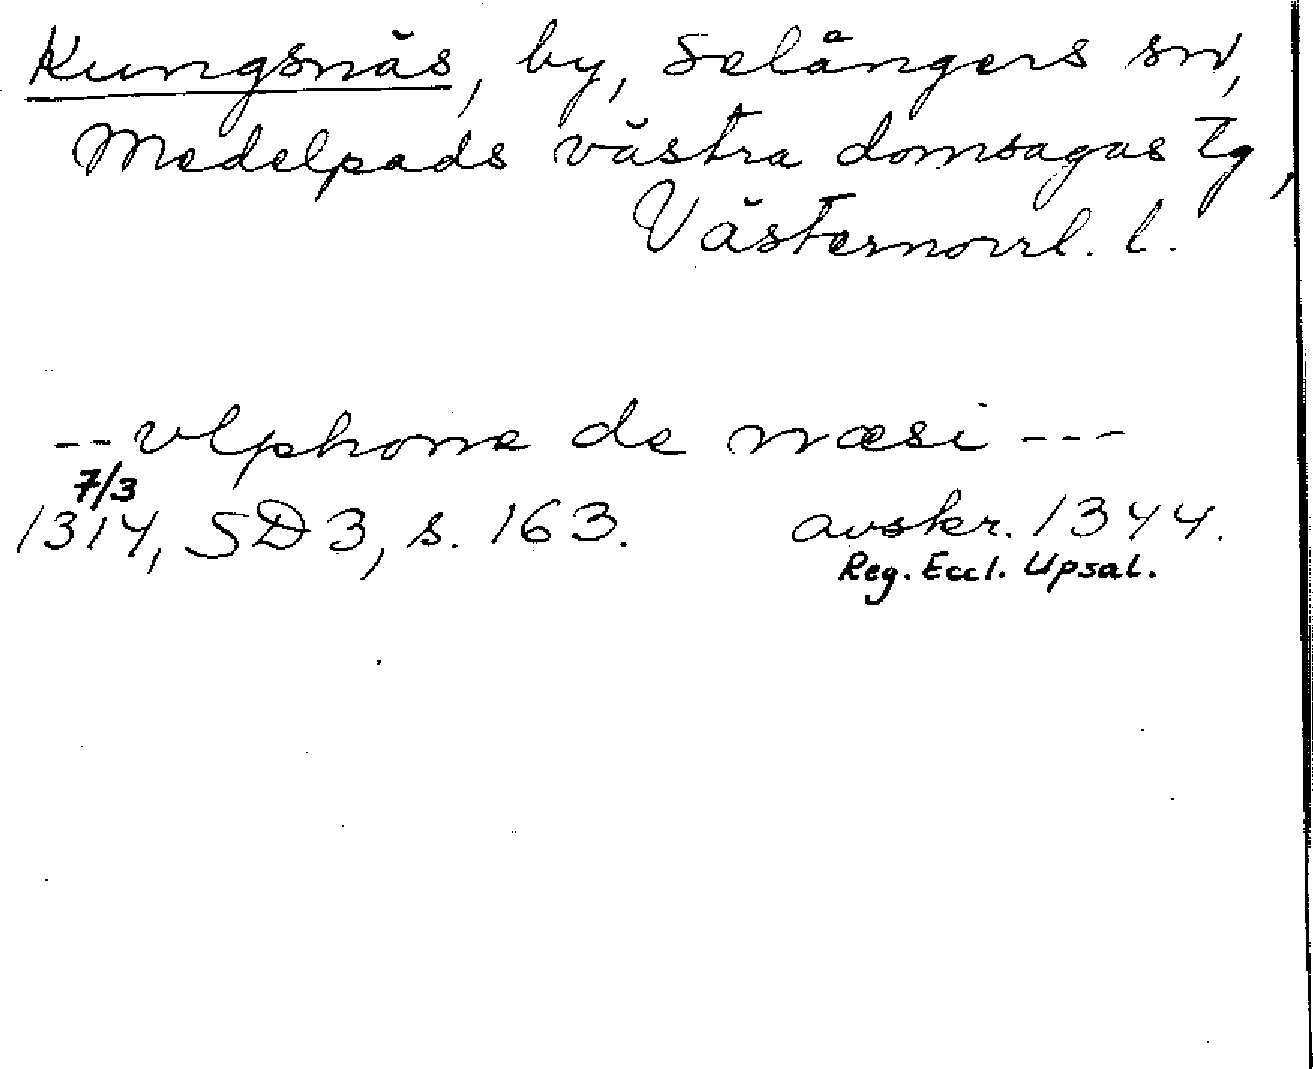 Kungsnäs, by, Selångers sn,
Medelpads västra domsagas tg,
Västernorrl. l.
-- vlphone de næsi ---
7/3
1314, SD 3, s. 163. avskr. 1344.
Reg. Eccl. Upsal.